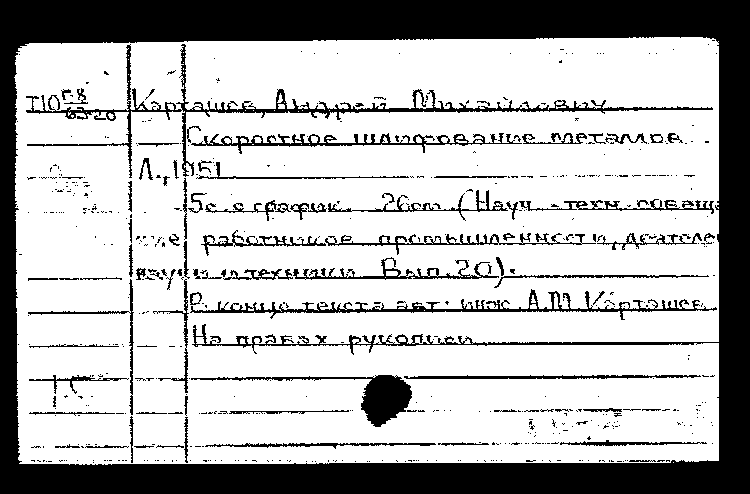 П10 58/63-20 Карташев, Андрей Михайлович
Скоростное шлифование металлов
Л., 1951
5с с график. 26см (Науч.-техн. совеща
ние работников промышленности, деятеле
науки и техники Вып. 20).
В конце текста авт: инж. А.М Карташев
На правах рукописи